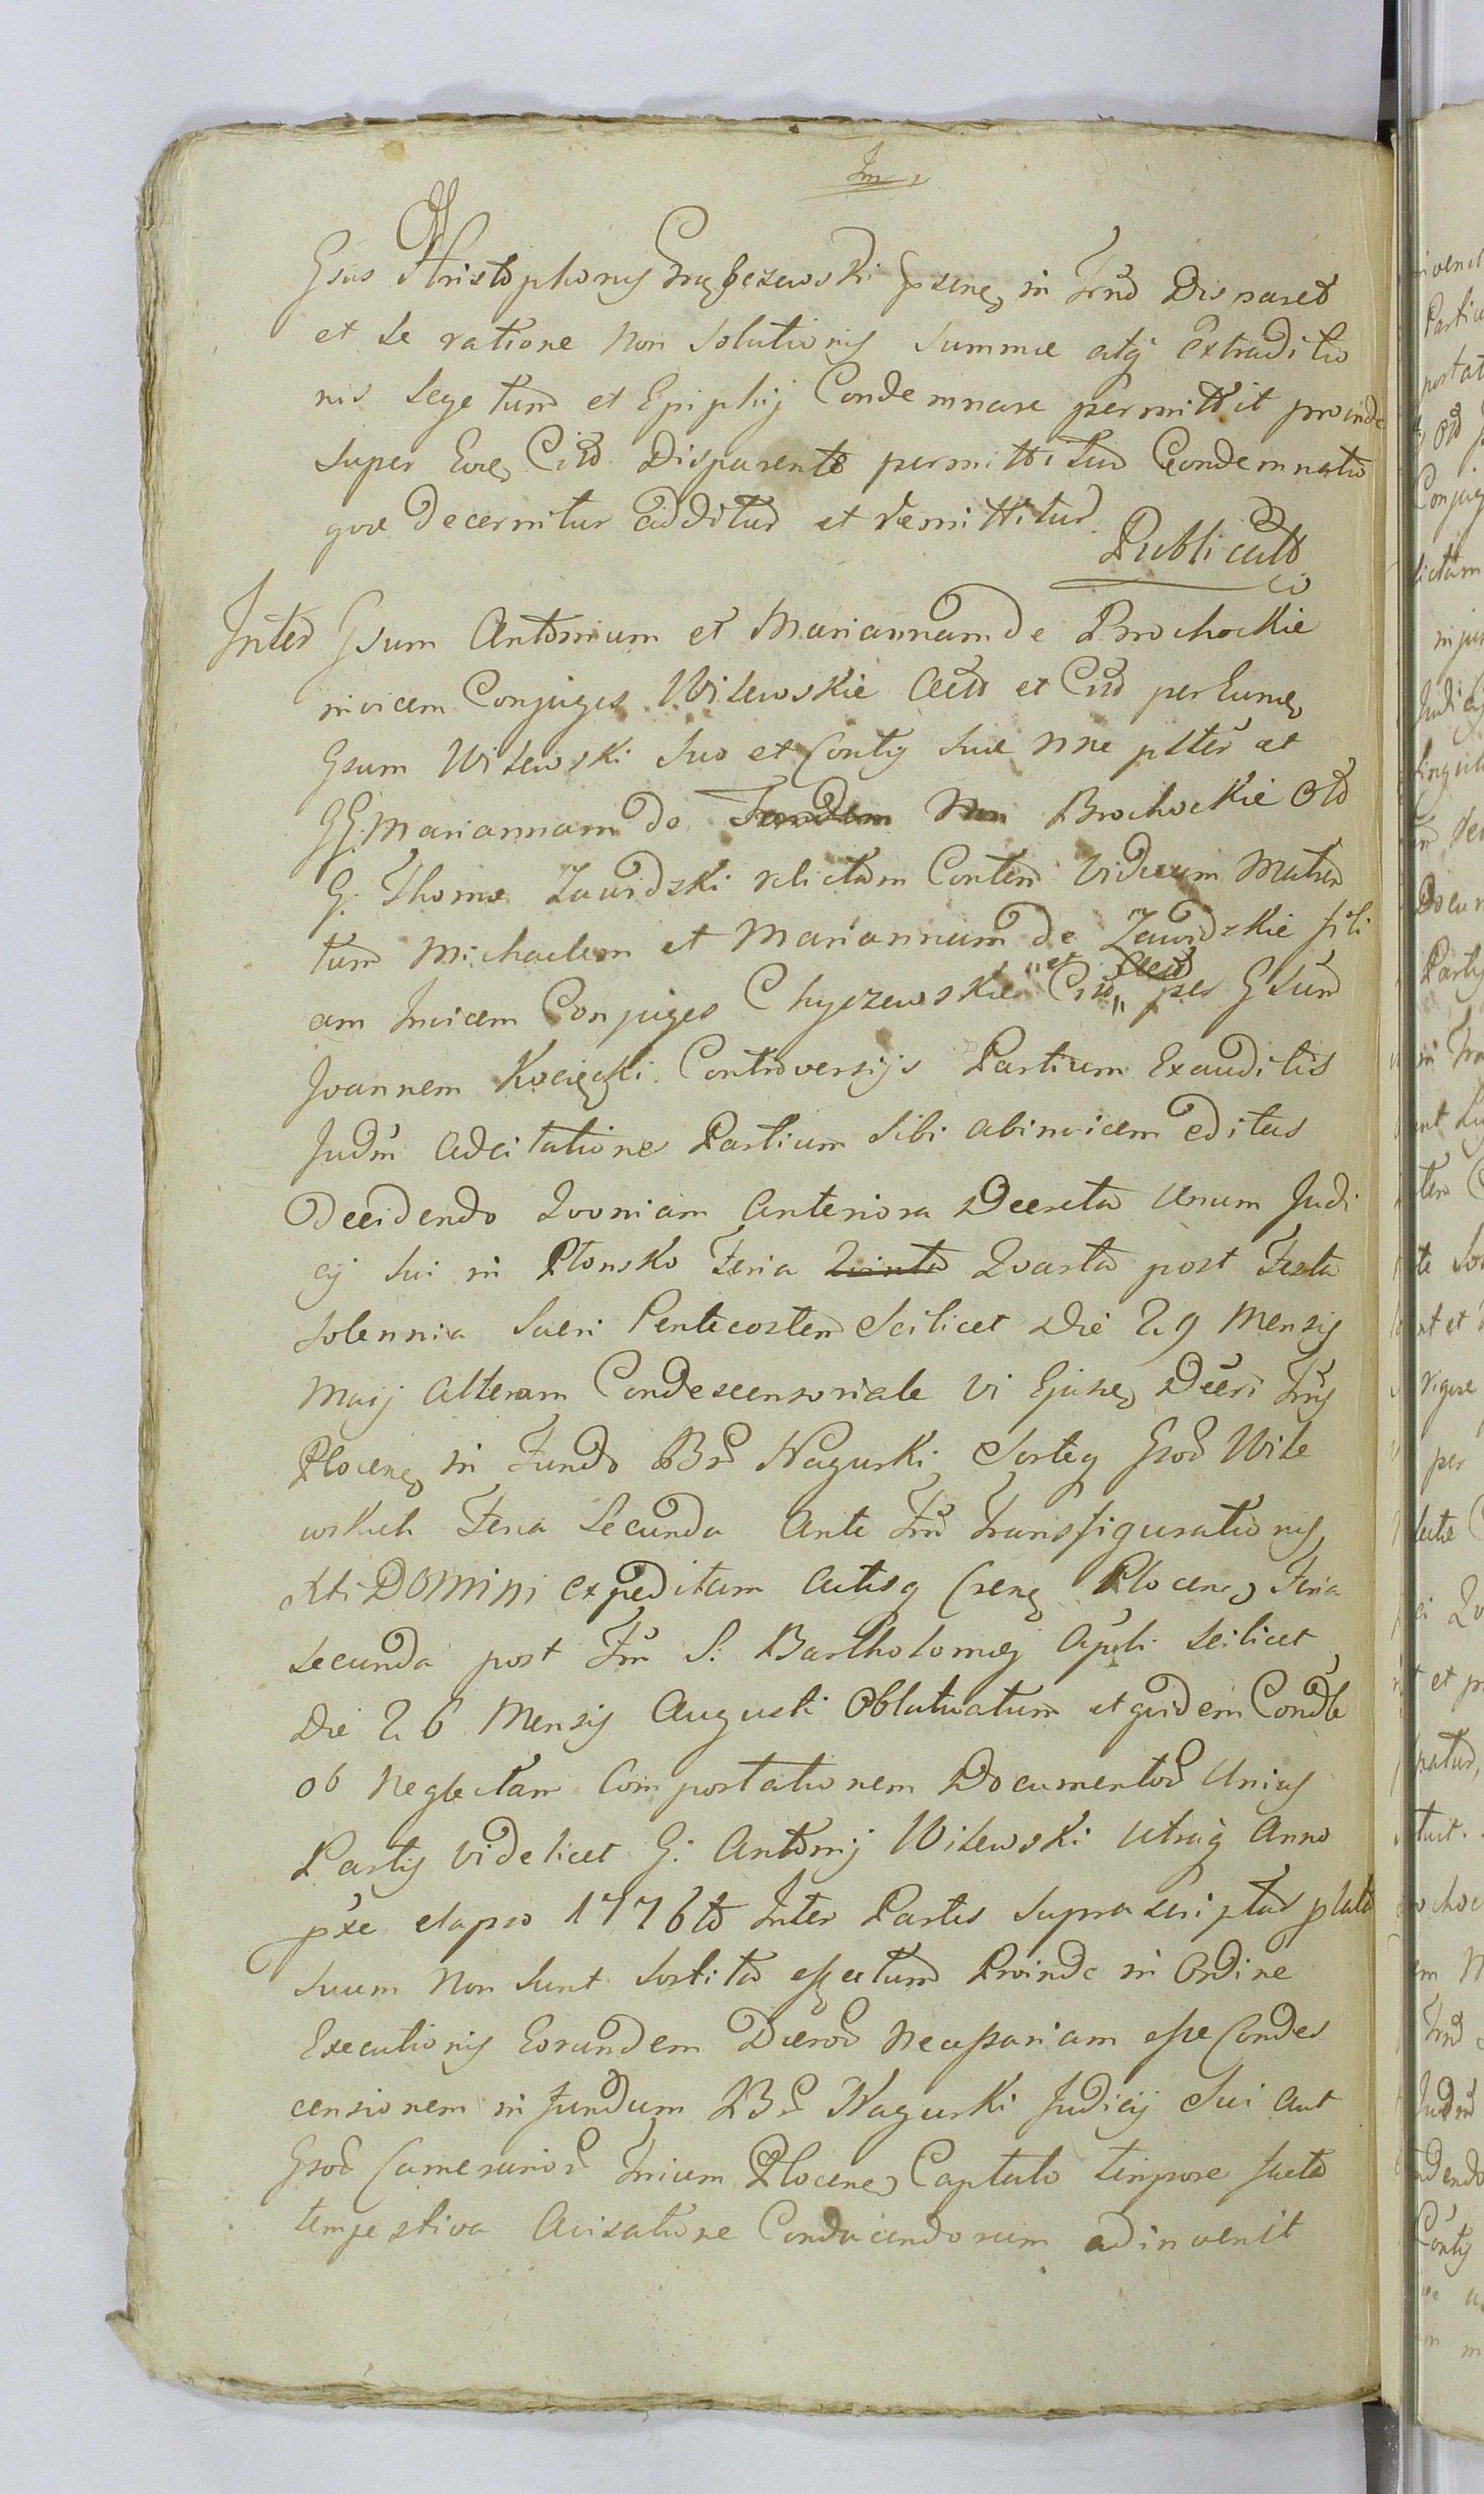 Gsus Christophorus psens in Trno Disparet
et se ratione non Solutionis Summae atq Extraditio
nis Legatum et Epiphij Condemnare permittit proinde
super Eode Citto Disparente permittitur Condemnatio
quae Decernitur additur et remittitur
Publicato
Inter Gsum Antonium et Mariannam de Brochockie
invicem Conjuges Wilewskie et Citt per Eunde
Gsum Wilewski Suo et Contis Suae nne plter et
GG. Mariannam de Brochockie Old
G. Thomae Zawidzki relictam Contem Viduam Matrem
tum Michaelem et Mariannam de Zawidzkie fili
am Invicem Conjuges Chyczewskie „et Citt„ per Gsum
Joannem Kocięcki. Controversijs Partium Exauditis
Judm ad citationes Partium Sibi abinvicem editas
Decidendo Qvoniam anteriora Decreta Unum Judi
cij Sui in Płonsko Feria Qvinta Qvarta post Festa
Solennia Sacri Pentecosten Scilicet Die 29 Mensis
Maij alterum Condescensoriale vi Ejusde Decri Trris
Plocens in Fundo Br Nagurki Sorteq Gsod Wile
wskich Feria Secunda Ante Fm Transfigurationis
Xti DOMINI expeditum Actisq Crens Plocens Feria
Secunda post Fm S. Bartholomaej Apli Scilicet
Die 26 Mensis Augusti Oblatuatum et qvidem Condle
ob Neglectam Comportationem Documentor Unius
Partis videlicet G. Antonij Wilewski utraq Anno
pxe elapso 1776to Inter Partes Suprascriptas plata
Suum non Sunt Sortita effectum Proinde in Ordine
Executionis Eorundem Dcror Necessariam esse Condes
censionem in Fundum Br Nagurki Judicij Sui aut
Gsod Camerarior Trrium Plocens Captato tempore facta
tempestiva Avisatione Conducendorum adinvenit